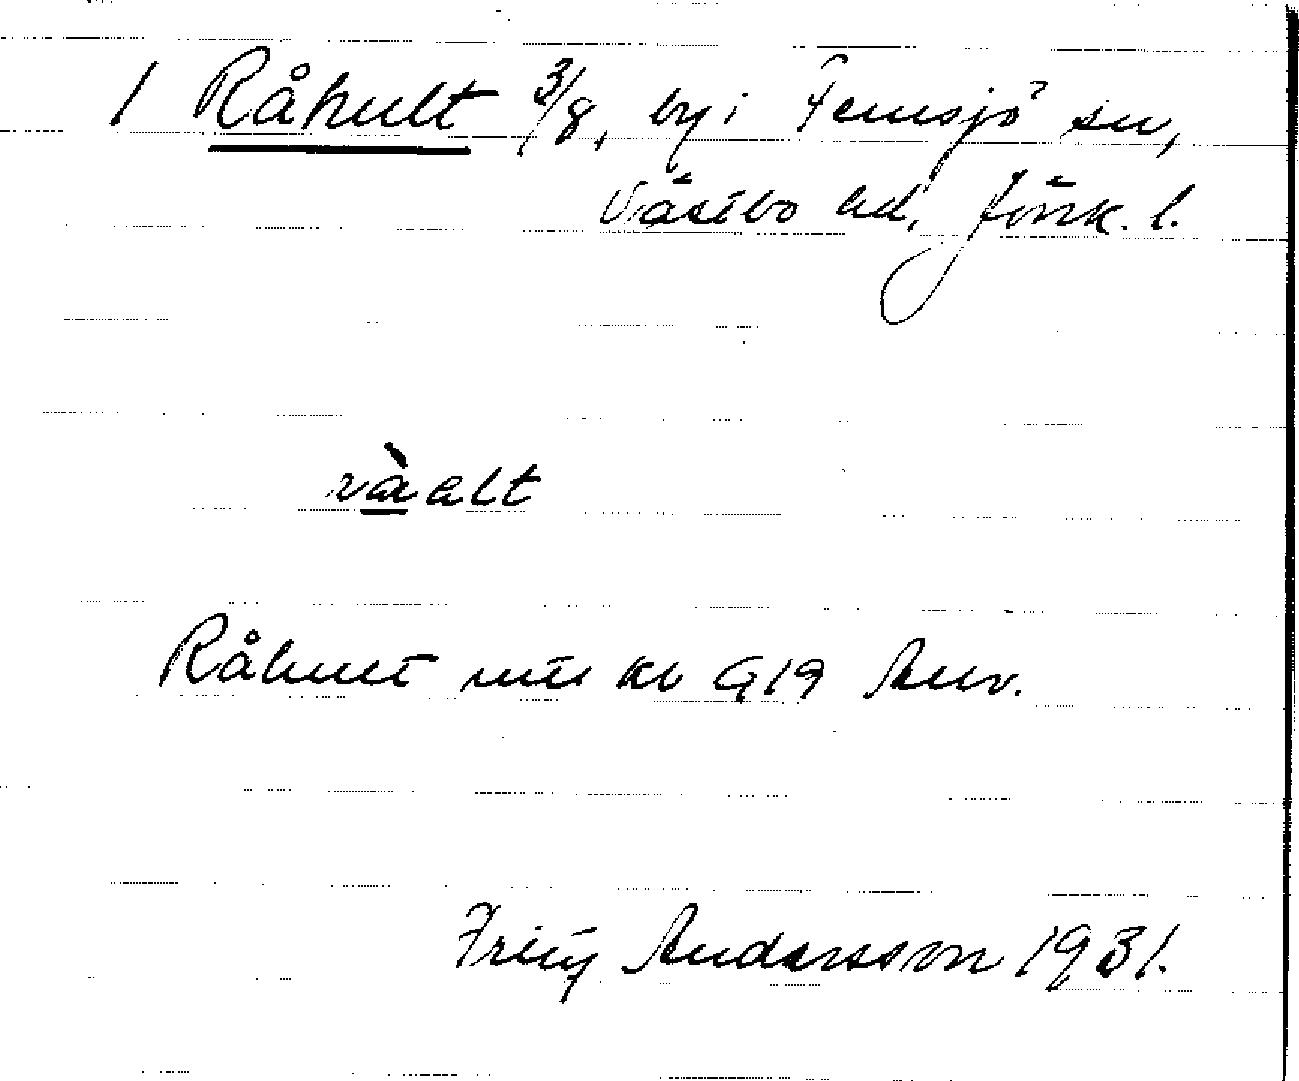 1 Råhult 3/8, by i Femsjö sn,
Västbo hd, Jönk. l.
ràalt
Råhult kb G19 Anv.
Andersson 1931.